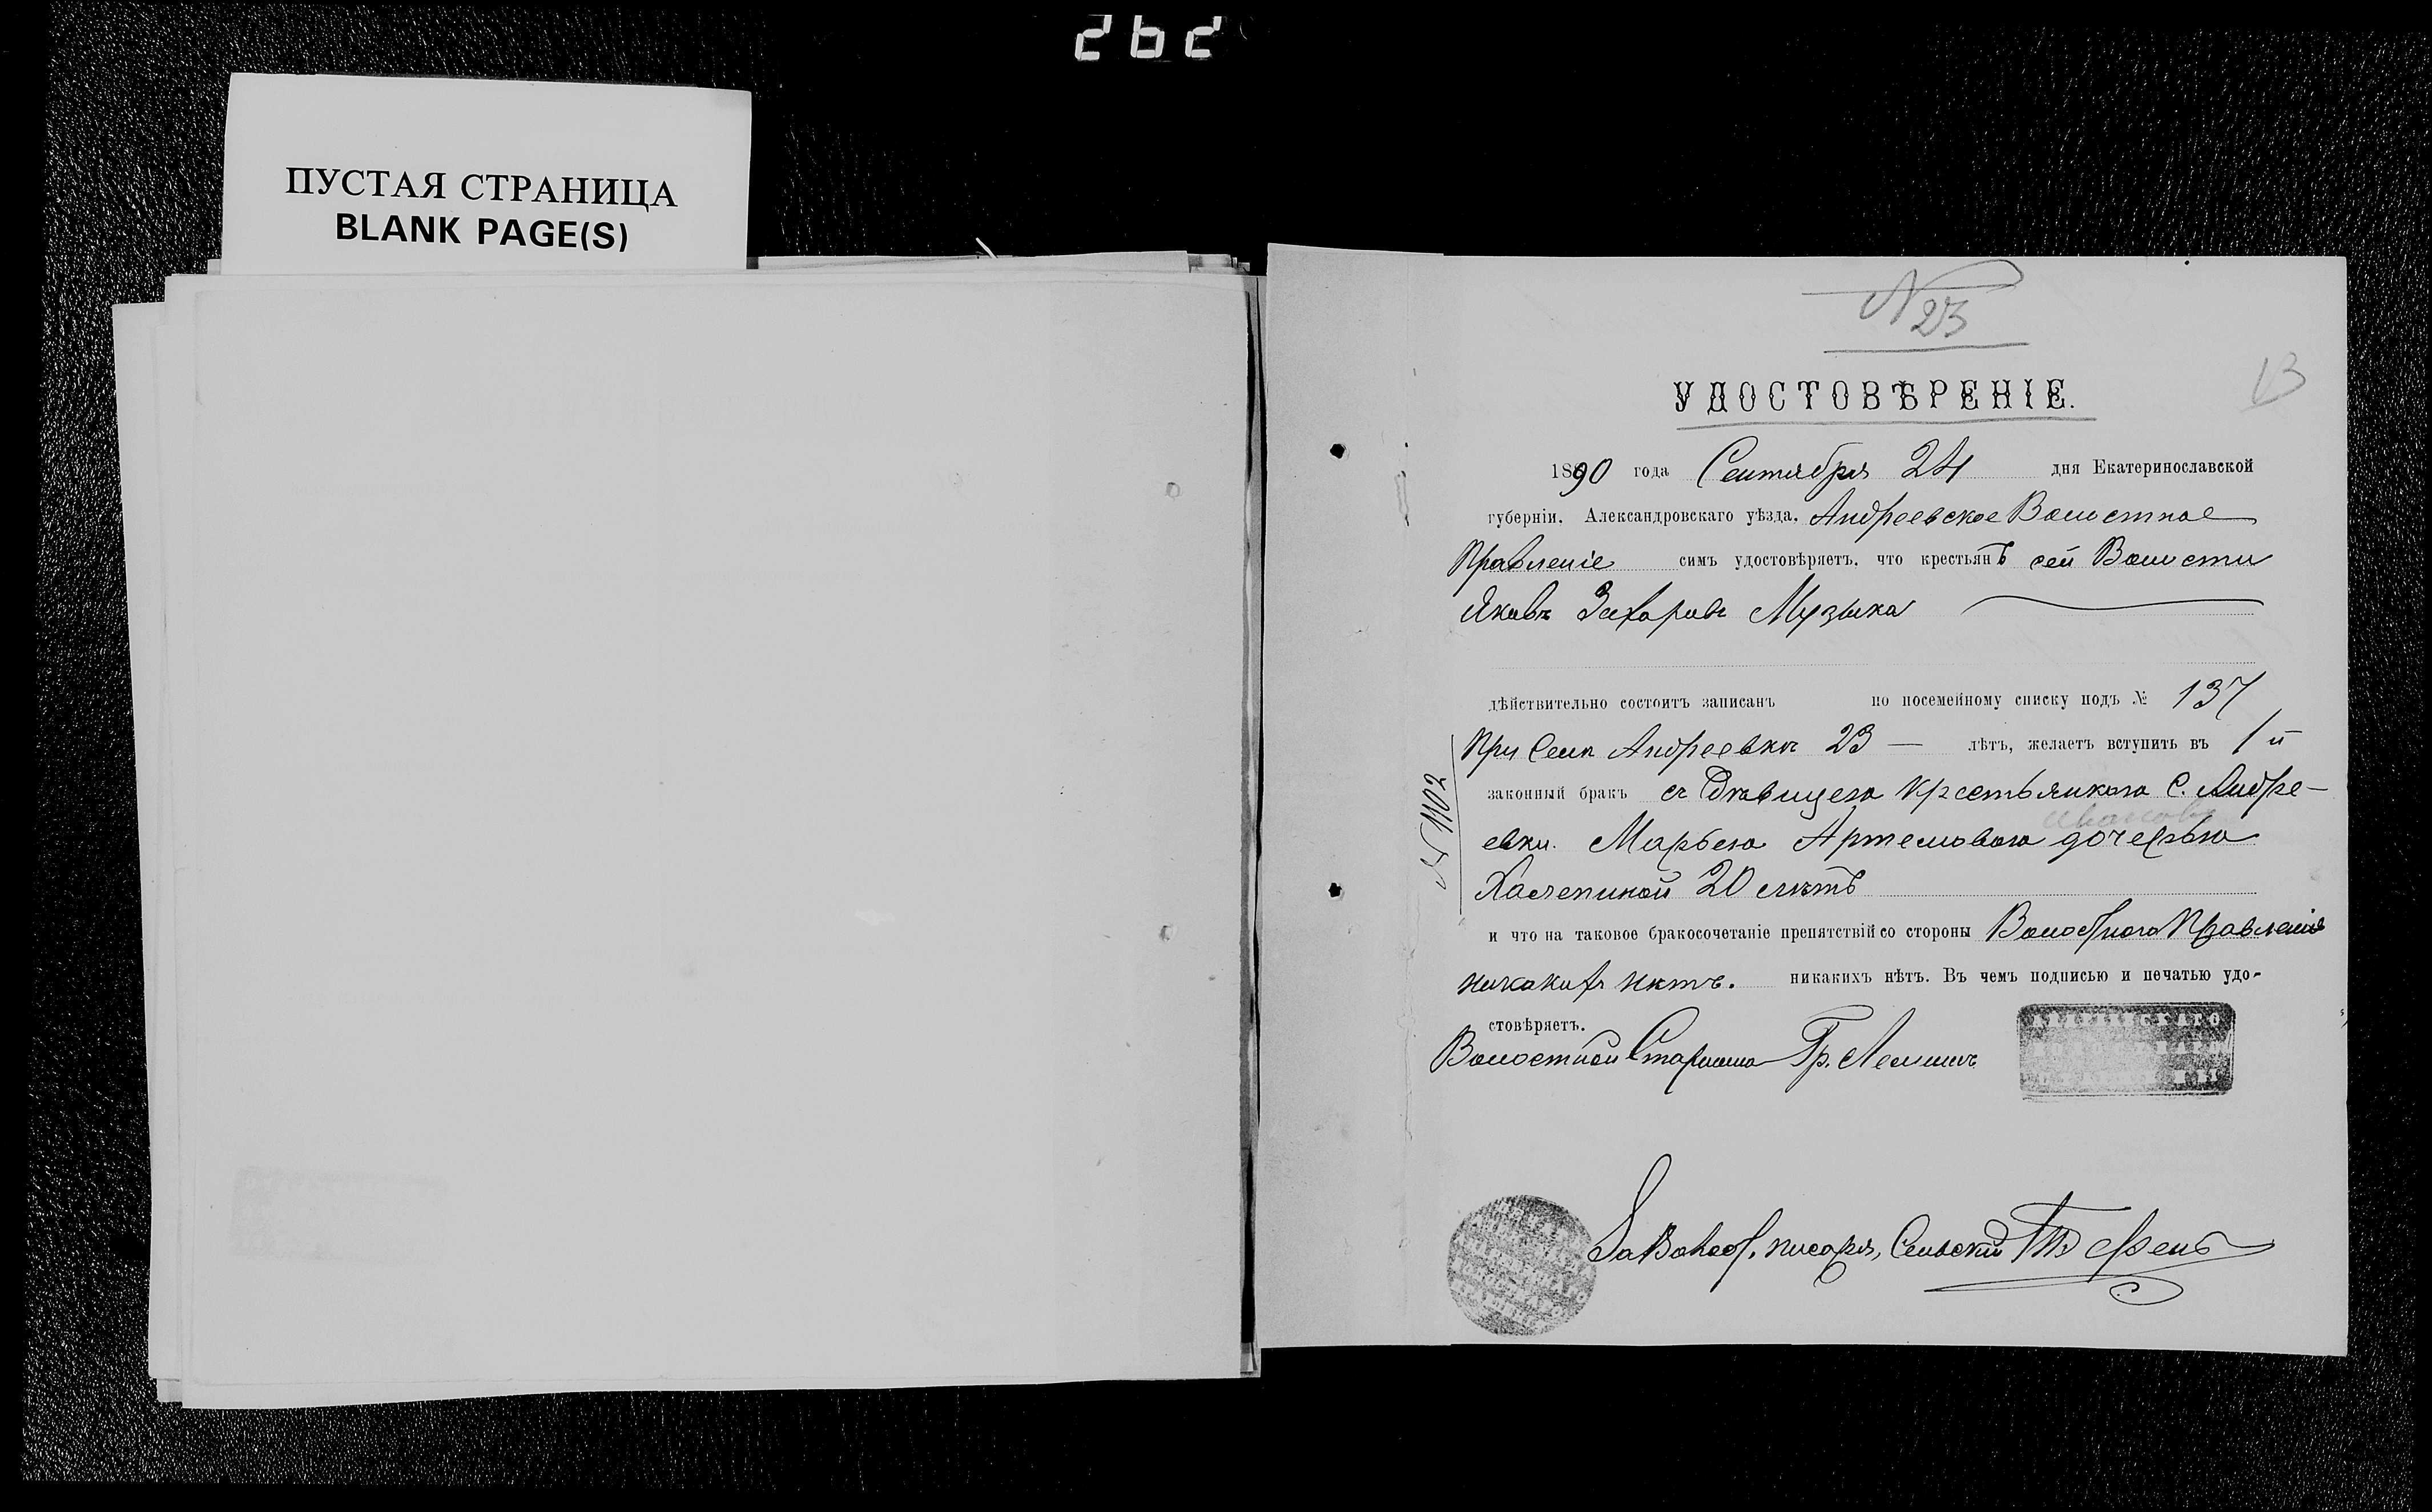 262
ПУСТАЯ СТРАНИЦА
BLANK PAGE(S)
N 23
13
УДОСТОВѢРЕНІЕ.
1890 года Сентября 24 дня Екатеринославской
губерніи, Александровскаго уѣзда, Андреевское Волостное
Правленіе симъ удостовѣряетъ, что крестьянъ сей Волости
Яковъ Захаровъ Музыка
дѣйствительно состоитъ записанъ по посемейному списку подъ № 137
При Селѣ Андреевкѣ 23 — лѣтъ, желаетъ вступить въ 1й
законный бракъ съ Дѣвицею крестьянкою С. Андре-
евки Марьею Артемовою дочерью
20 лѣтъ
и что на таковое бракосочетаніе препятствій со стороны Волостного Правленія
никакихъ нѣтъ. никакихъ нѣтъ. Въ чемъ подписью и печатью удо-
стовѣряетъ.
Волостной Старшина Гр.
За Волост. писаря, Сельскій
№ 1102